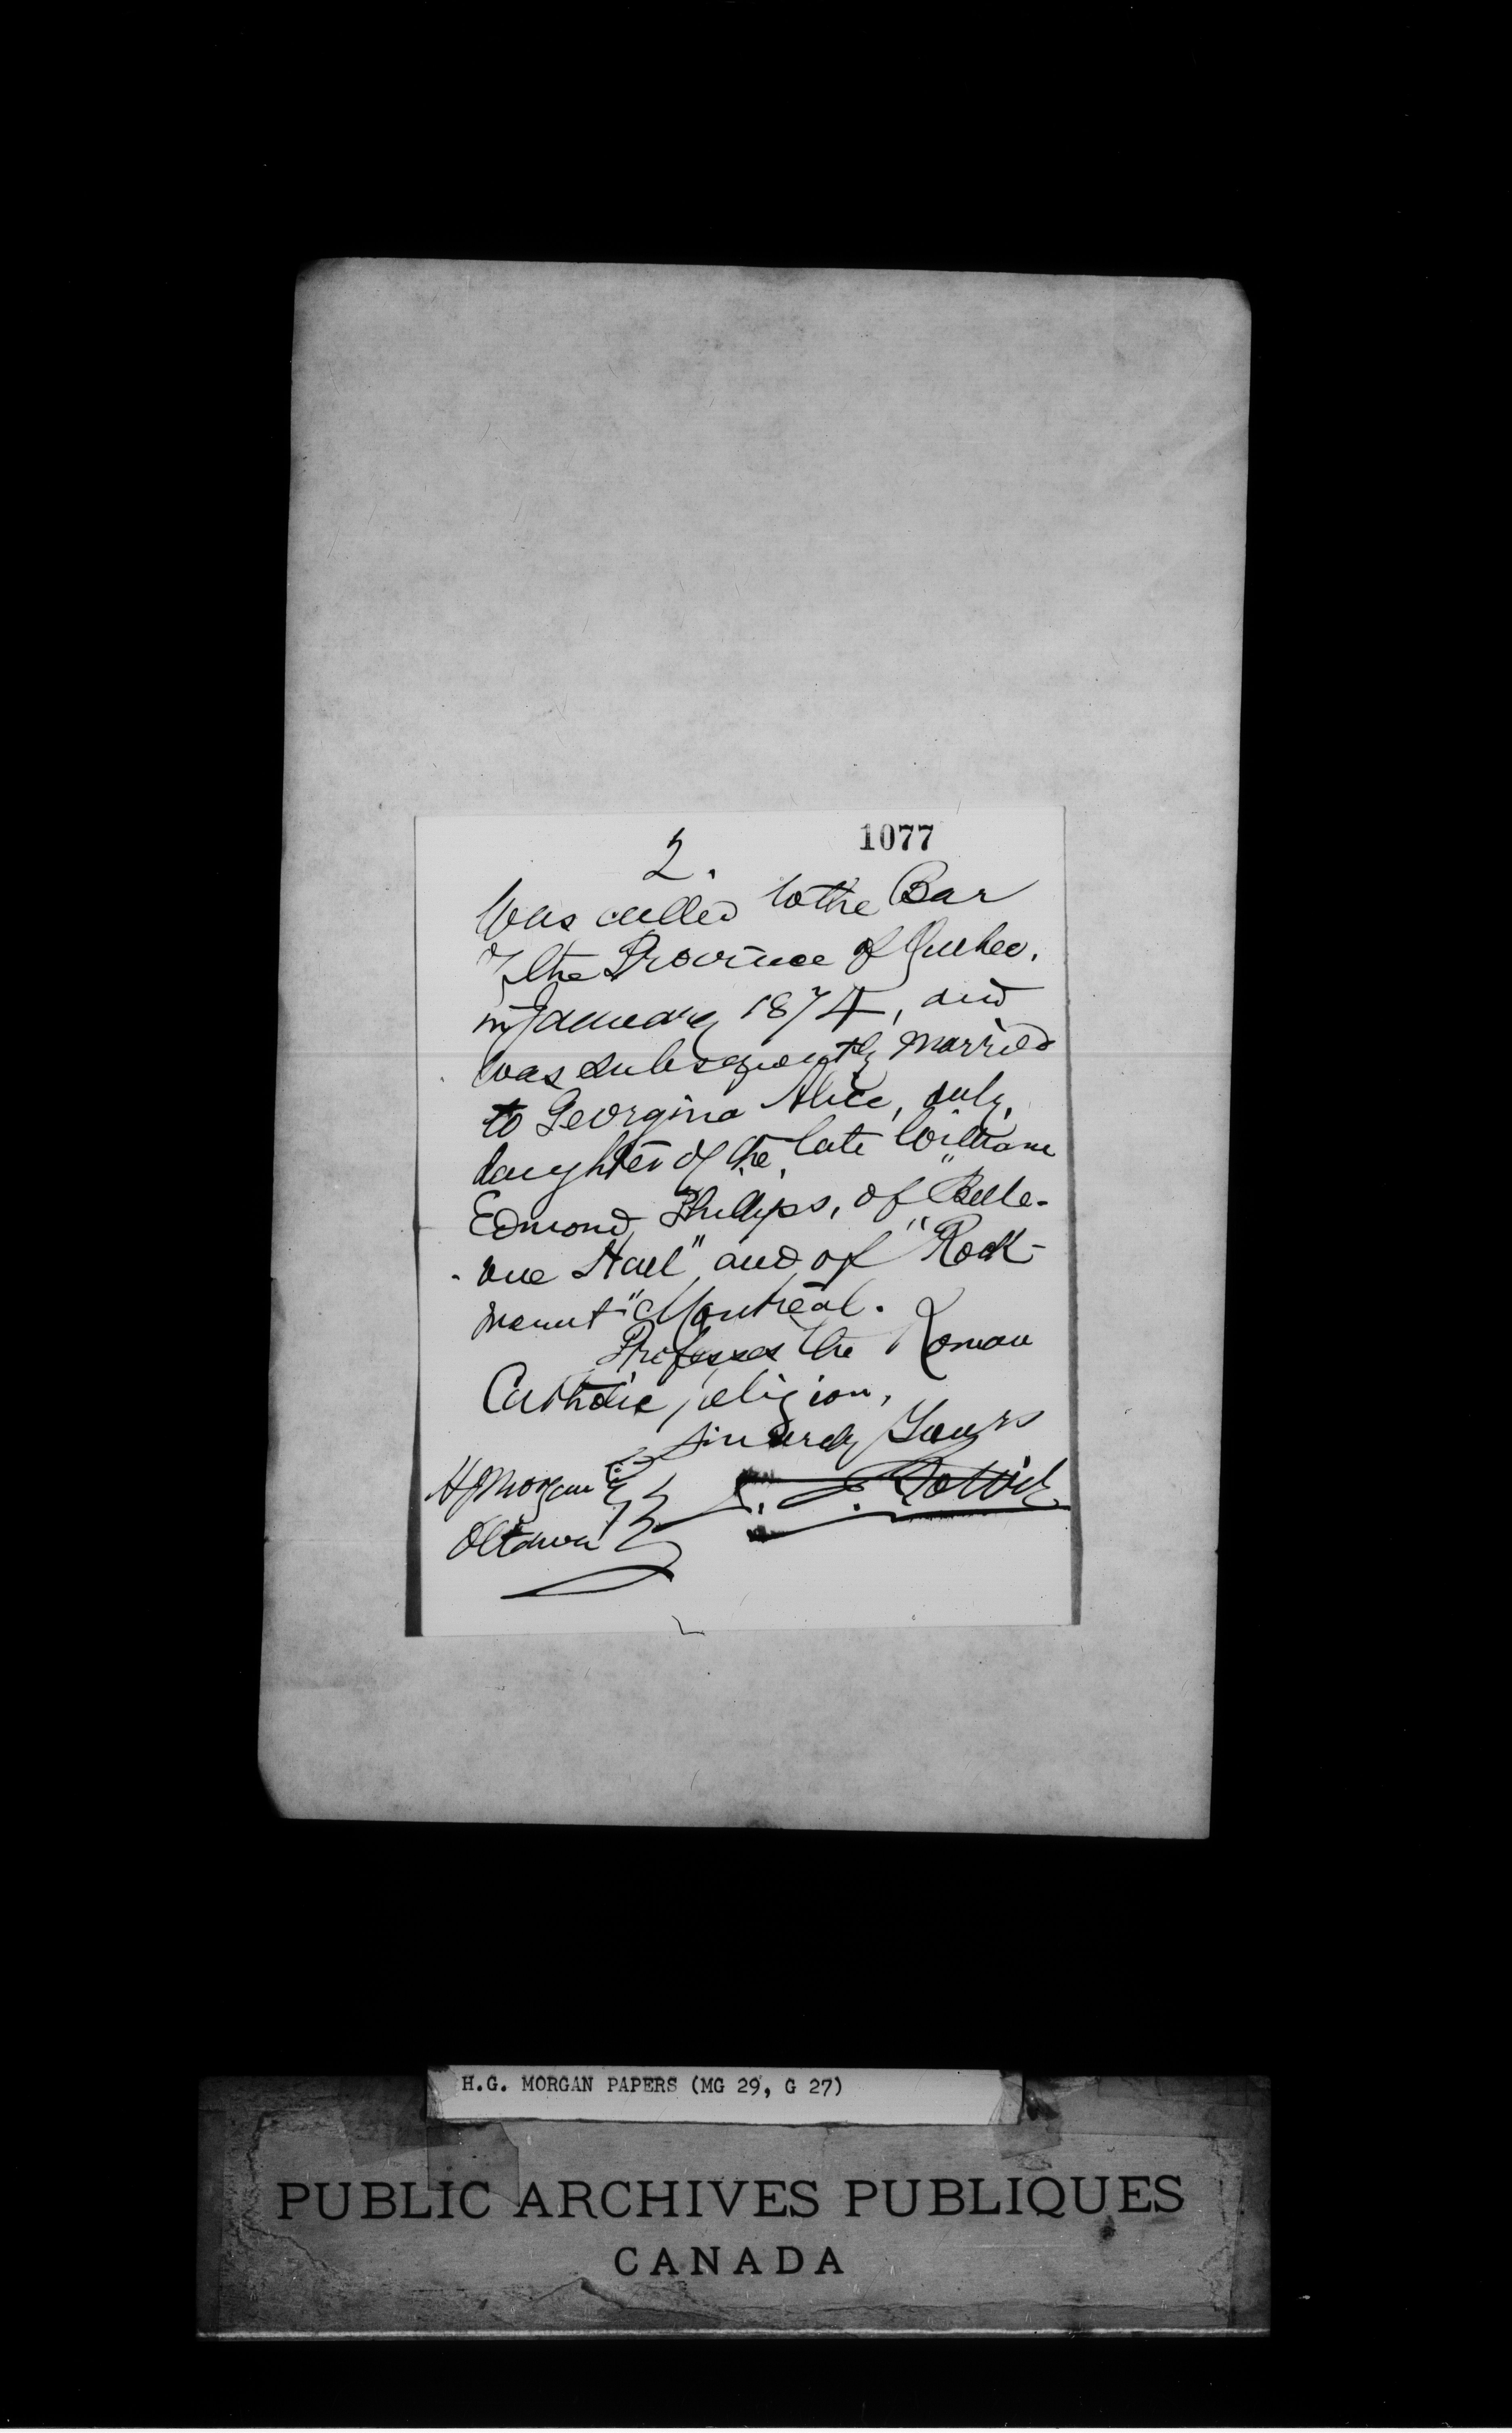 2.
1077
Was called to the Bar
of the Province of Quebec,
in January 1874, and
was subsequently married
to Georgina Alice, only,
daughter of the late William
Edmond Phillips, of "Belle-
vue Hall" and of "Rock-
mount" Montreal.
Professes the Roman
Catholic religion,
Sincerely Yours
HJ Morgan
Ottawa
H.G. MORGAN PAPERS (MG 29, G 27)
PUBLIC ARCHIVES PUBLIQUES
CANADA